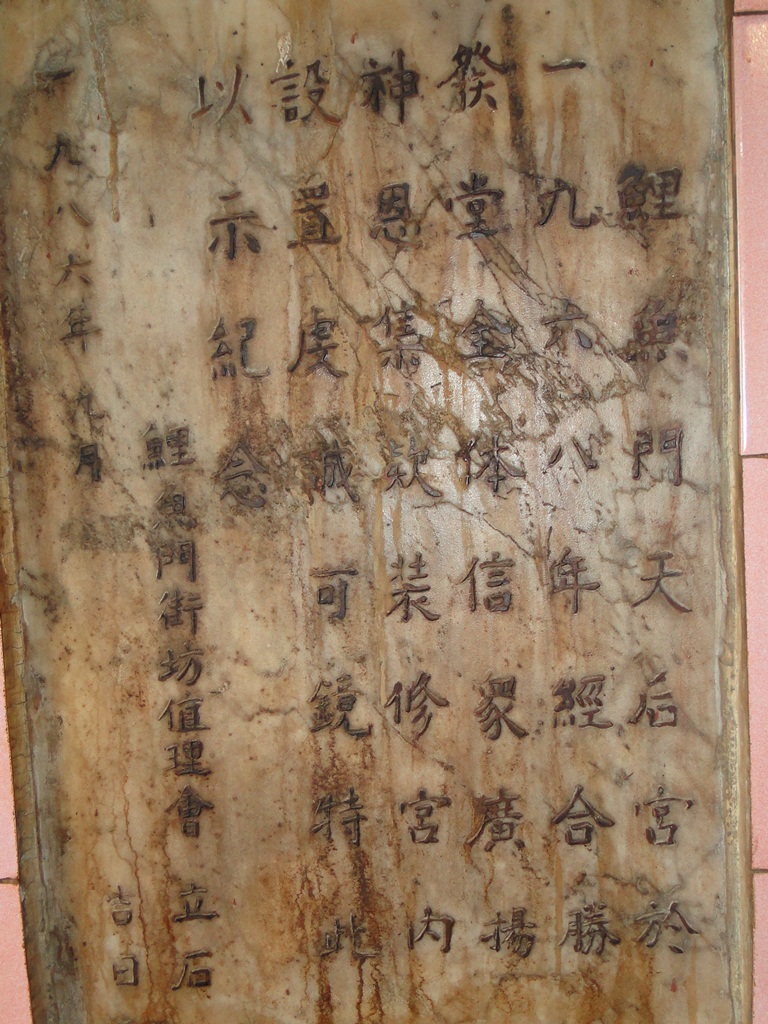 鯉魚門天后宮於
一九六八年經合勝
發堂全体信衆廣揚
神恩集款装修宮內
設置虔誠可鏡特此
以示紀念
鯉魚門街坊值理會立石
一九八六年九月吉日